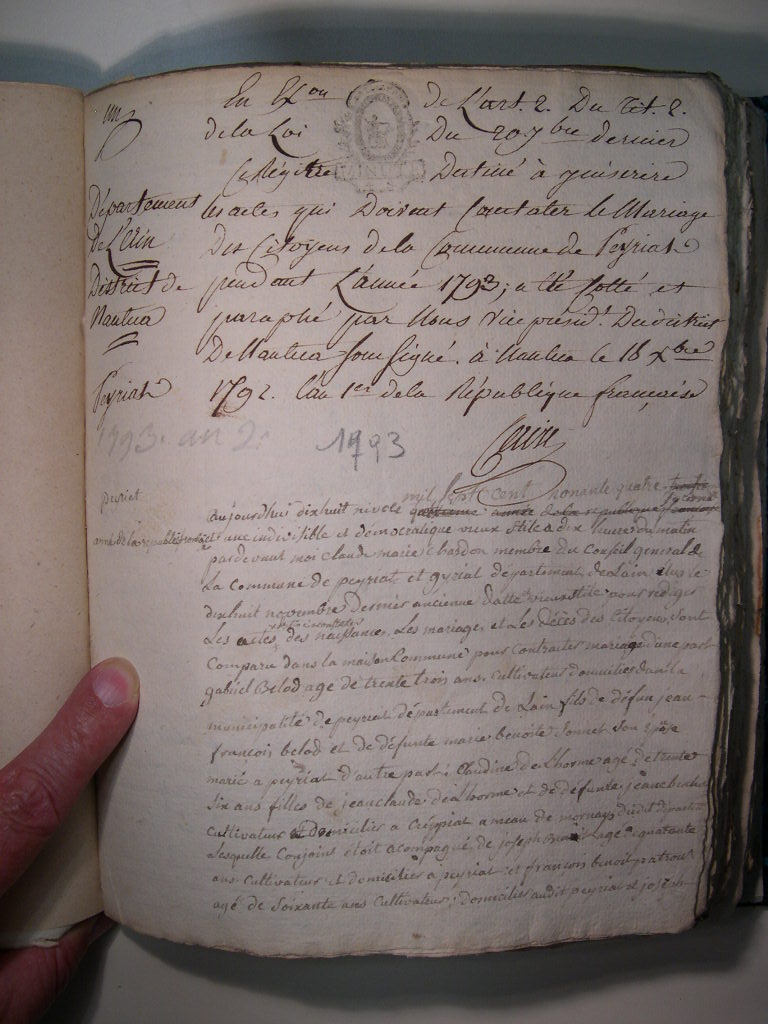 un
En Exon de L'art. 2. Du Tit. 2.
de la Loi Du 20 7bre dernier
Le Régitre Destiné à
Département
de L'ain
District de
Nantua
Peyriat
les actes qui Doivent Constater le Mariage
Des Citoyens de la Commune de Peyriat
pendant L'année 1793, a été Cotté et
paraphé par Nous Vice présidt. Du district
De Nantua Soussigné. à Nantua le 18 Xbre
1792. L'an 1er de la République française
1793. an 2.
1793
peyriat
anné de la republique
mil sept cent nonante quatre
aujourdhui dixhuit nivose
une indivisible et démocratique vieux stile a dix heure du matin
pardevant moi claude marie chardon membre du Conseil general de
La Commune de peyriat et departement de Lain elus le
dixhuit novembre dernier ancienne datte vieux stile pour rediger
Les actes des naissances, Les mariages et Les décès des Citoyens, sont
Comparu dans la maison Commune pour contracter mariage d'une part
gabriel Belod age de trente trois ans, cultivateur domicilies dans la
municipalité de peyriat département de Lain fils de défun jean
françois belod et de défunte marie benoite Jonnet Son
marié a peyriat d'autre part, Claudine de Lhorme agé de trente
Six ans filles de jean claude de Lhorme et de défunte jeane
Cultivateur et Domicilier a Créppiat ameau de mornay dudit
Lesquelle Conjoins étoit acompagné de joseph agé quarante
ans Cultivateur et domicilier a peyriat et francois benoit
agé de Soixante ans Cultivateur, domicilier audit peyriat et joseph